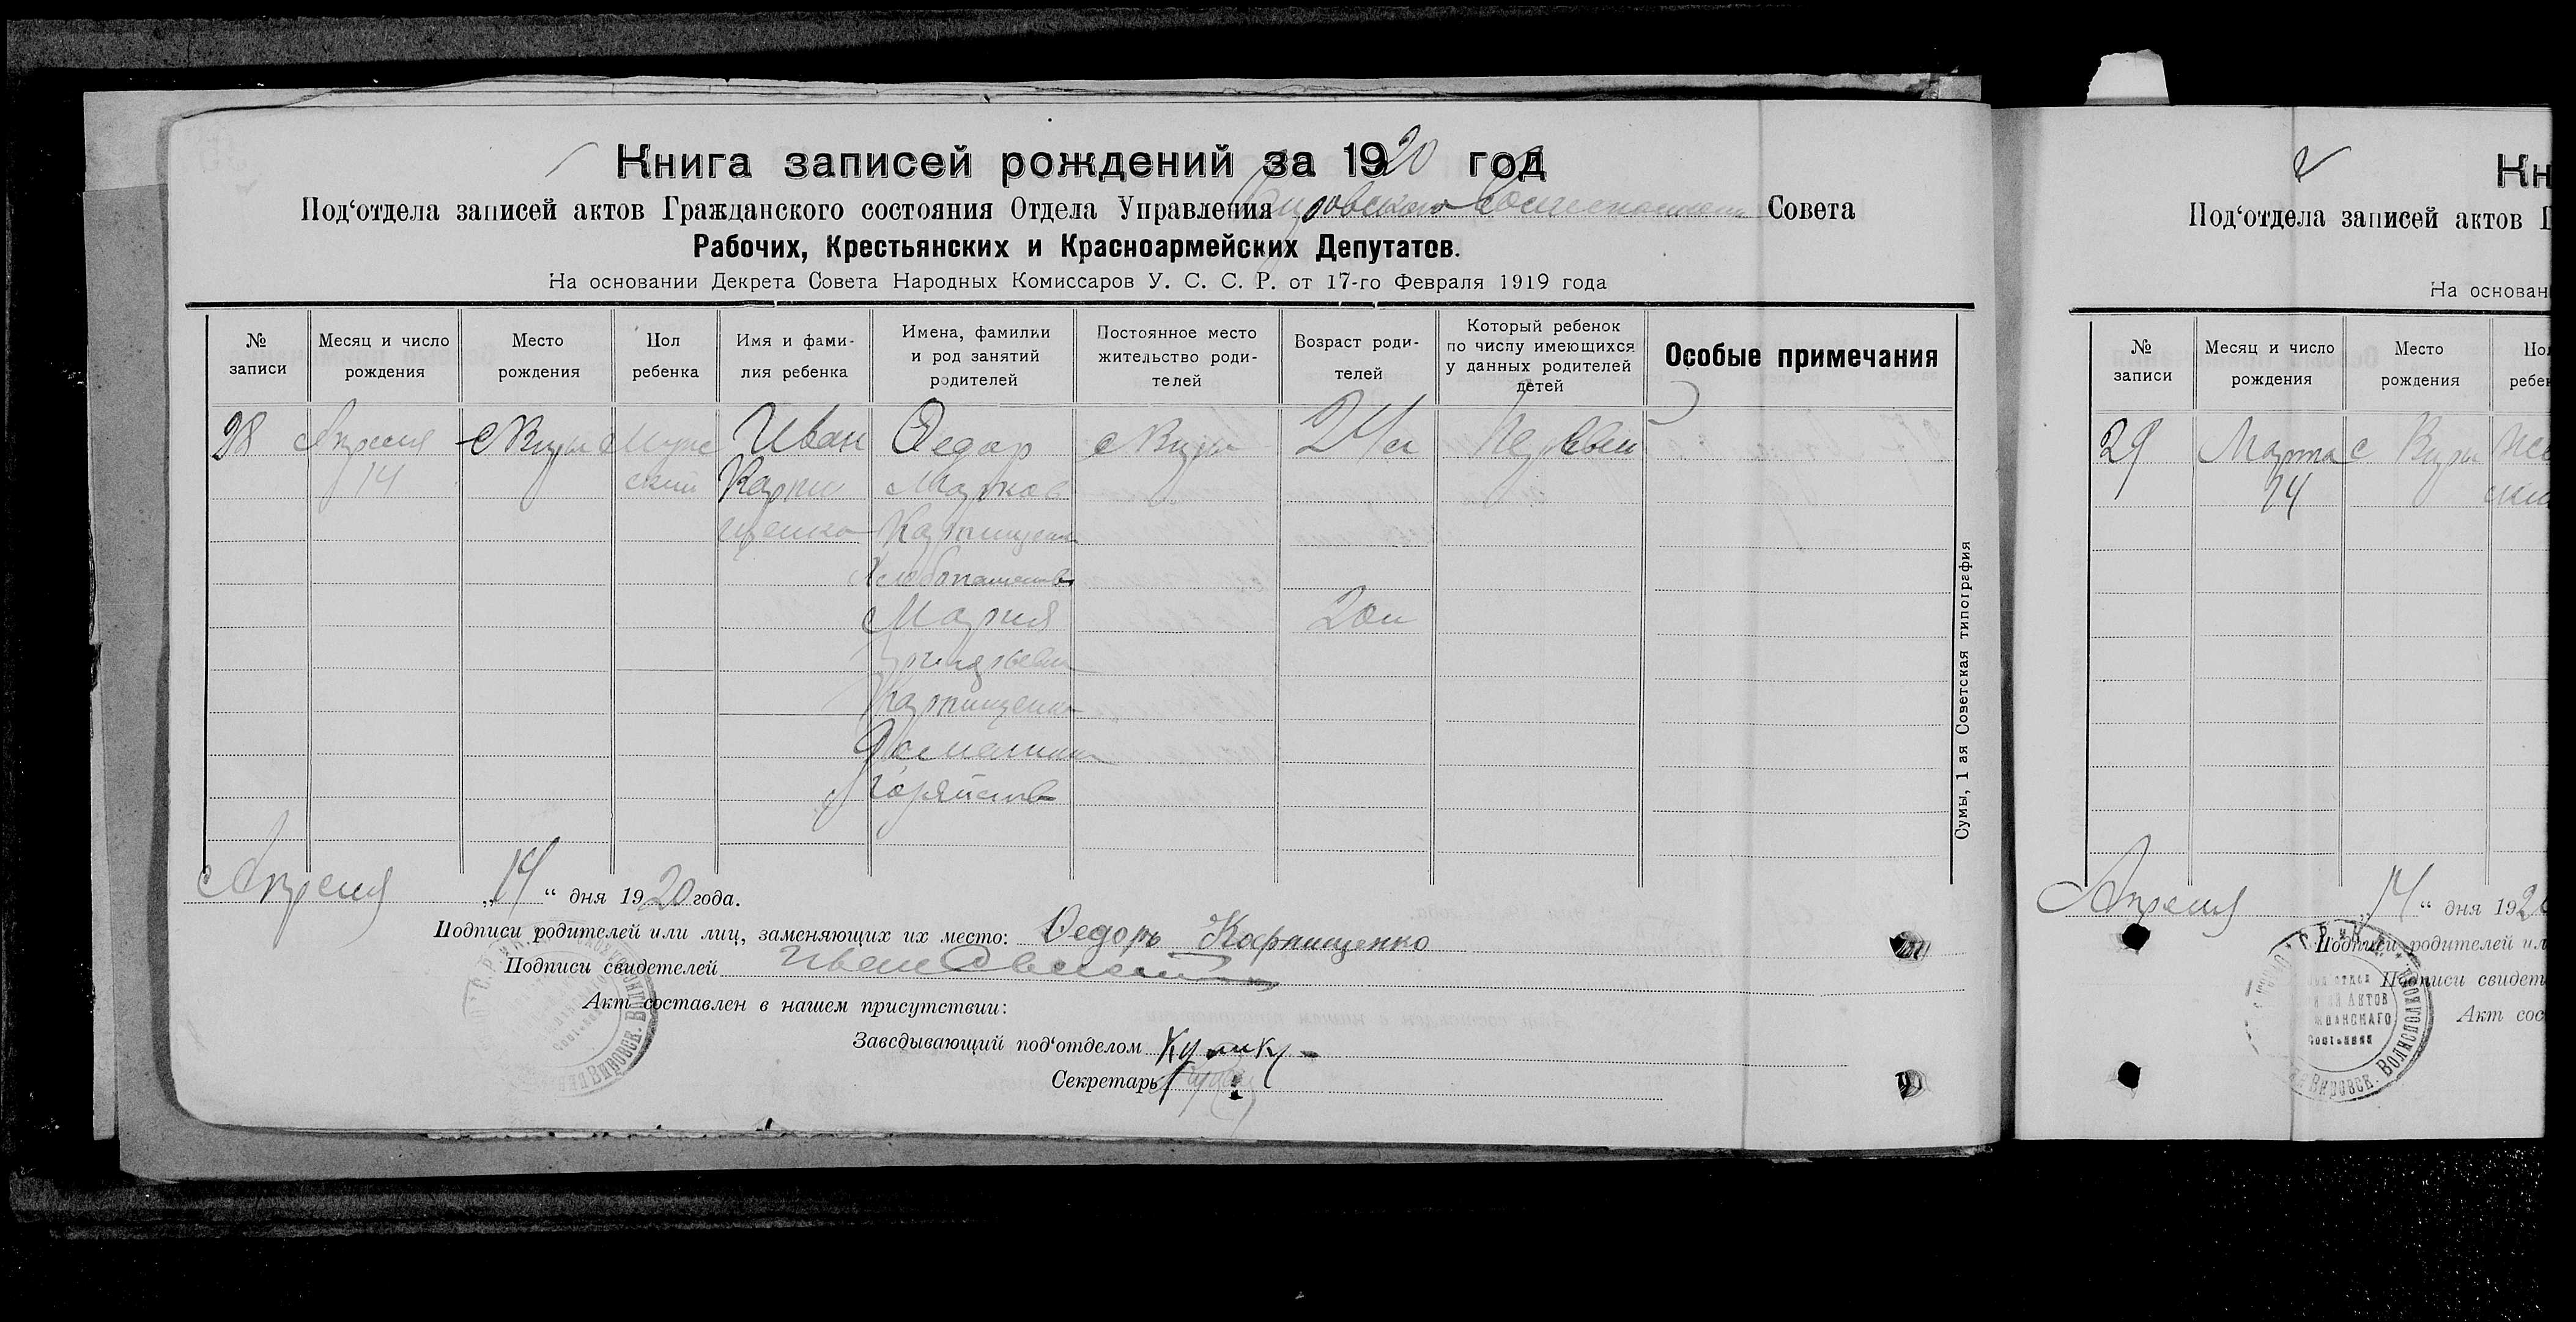 Книга записей рождений за 1920 год
Под‘отдела записей актов Гражданского состояния Отдела Управления Вировского Совета
Рабочих, Крестьянских и Красноармейских Депутатов.
На основании Декрета Совета Народных Комиссаров У. С. С. Р. от 17-го Февраля 1919 года
№ записи
Месяц и число рождения
Место рождения
Пол ребенка
Имя и фами-
лия ребенка
Имена, фамилии
и род занятий
родителей
Постоянное место
жительство роди-
телей
Возраст роди-
телей
Который ребенок
по числу имеющихся
у данных родителей
детей
Особые примечания
28
Апреля
14
с Виры
Мужс
ский
Иван
Карпи
щенко
Федор
Марков
Карпищенко
Хлебопашеств
Мария
Карпищенко
Домашни
Хозяйств
с Виры
24 л
20 л
Первый
Апреля „14“ дня 1920 года.
Подписи родителей или лиц, заменяющих их место: Федоръ Карпищенко
Подписи свидетелей Иван
Акт составлен в нашем присутствии:
Заведывающий под‘отделом
Секретарь
Сумы, 1 ая Советская типография
Кн
Под‘отдела записей актов Г
На основан
№ записи
Месяц и число рождения
Место рождения
Пол
ребен
29
Марта
14
с Виры
Же
Апреля „14“ дня 192
Подписи родителей ил
Подписи свидет
Акт сос
АКТОВ
Вировск. Волисполком